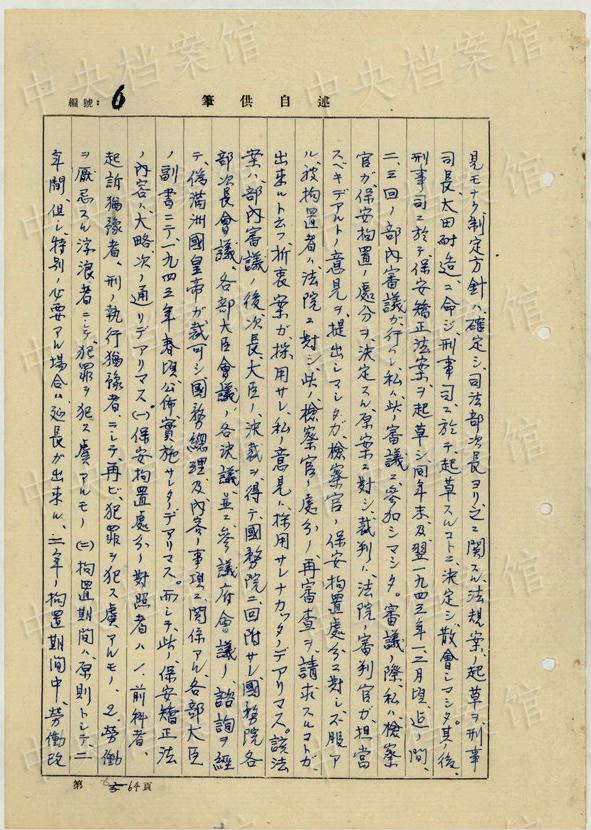 中央档案馆
編號：6
筆供自述
見モナク制定方針ハ確定シ、司法部次長ヨリ之ニ関スル法規案ノ起草ヲ刑事
司長太田耐造ニ命ジ、刑事司ニ於テ起草スルコトニ決定シ、散會シマシタ。其ノ後、
刑事司ニ於テ保安矯正法案ヲ起草シ、同年末及翌一九四三年一、二月頃迄ノ間、
二、三回ノ部内審議ガ行ハレ私ハ此ノ審議ニ参加シマシタ。審議ノ際、私ハ檢察
官ガ保安拘置ノ處分ヲ決定スル原案ニ對シ裁判ハ法院ノ審判官ガ担當
スベキデアルトノ意見ヲ提出シマシタガ、檢察官ノ保安拘置處分ニ對シ不服ア
ル、被拘置者ハ法院ニ對シ、此ノ檢察官ノ處分ノ再審査ヲ請求スルコトガ
出来ルト云フ折衷案ガ採用サレ、私ノ意見ハ採用サレナカッタノデアリマス。該法
案ハ部内審議ノ後次長大臣ノ決裁ヲ得テ國務院ニ回附サレ國務院各
部次長會議、各部大臣會議ノ各決議並ニ参議府會議ノ諮詢ヲ經
テ、偽満洲國皇帝ガ裁可シ國務總理及内容ノ事項ニ関係アル、各部大臣
ノ副書ニテ、一九四三年春頃公佈實施サレタノデアリマス。而シテ、此ノ保安矯正法
ノ内容ハ大略次ノ通リデアリマス(一)保安拘置處分ノ對照者ハ1、前科者、
起訴猶豫者、刑ノ執行猶豫者ニシテ、再ビ、犯罪ヲ犯ス虞アルモノ、2、勞働
ヲ厭忌スル浮浪者ニシテ、犯罪ヲ犯ス虞アルモノ(二)拘置期間ハ原則トシテ、二
年間、但シ特別ノ必要アル場合ハ延長ガ出来ル、二年ノ拘置期間中、勞働改
第 64頁